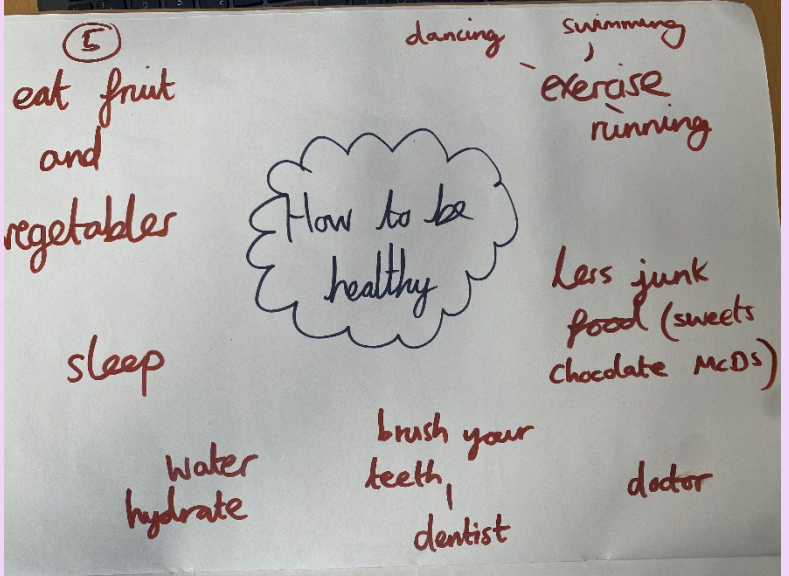 5
eat fruit
and
vegetables
dancing
swimming
exercise
running
How to be
healthy
Less junk
food (sweets
chocolate McDs)
sleep
water
hydrate
brush your
teeth
dentist
doctor